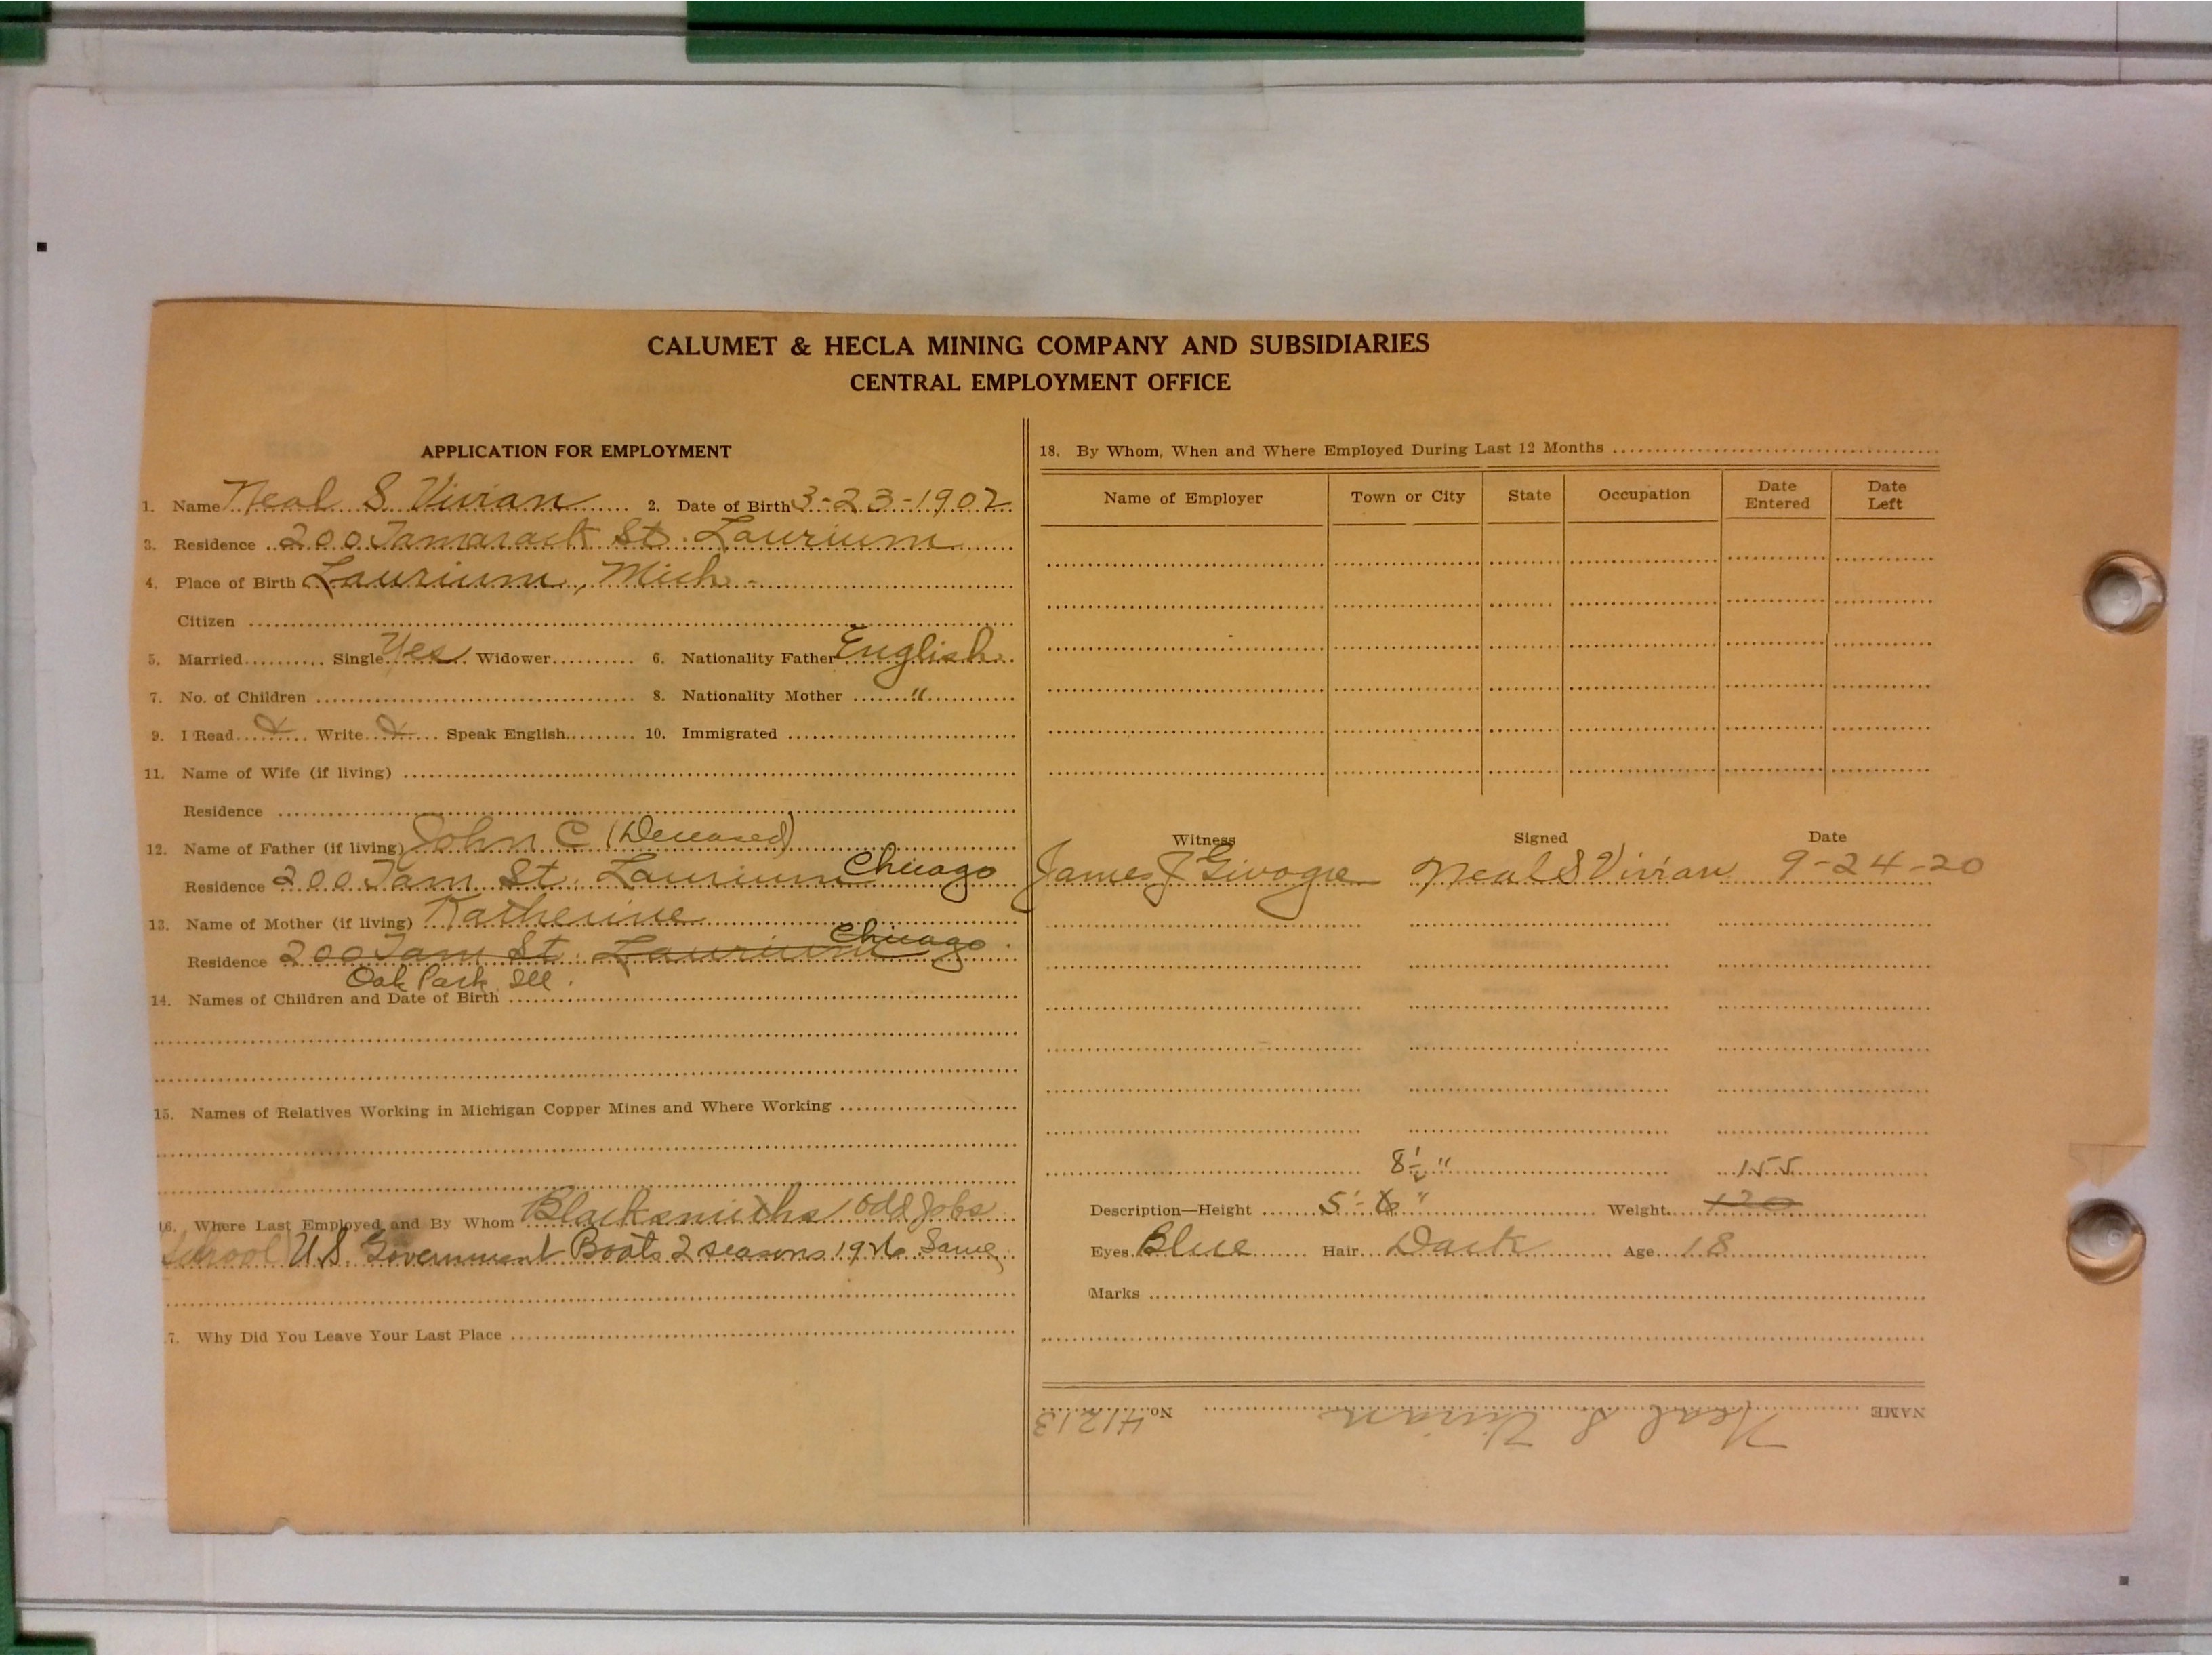 CALUMET & HECLA MINING COMPANY AND SUBSIDIARIES
CENTRAL EMPLOYMENT OFFICE
APPLICATION FOR EMPLOYMENT
1. Name Neal S. Vivian 2. Date of Birth 3-23-1902
3. Residence 200 Tamarack St. Laurium
4. Place of Birth Laurium, Mich.
Citizen
5. Married Single Yes Widower 6. Nationality Father English
7. No. of Children 8. Nationality Mother "
9. I Read X Write X Speak English 10. Immigrated
11. Name of Wife (if living)
Residence
12. Name of Father (if living) John C (Deceased)
Residence 200 Tam St. Laurium Chicago
13. Name of Mother (if living) Katherine
Chicago
Residence 200 Tam St. Laurium
Oak Park Ill.
14. Names of Children and Date of Birth
15. Names of Relatives Working in Michigan Copper Mines and Where Working
16. Where Last Employed and By Whom Blacksmiths / Odd Jobs
School U.S. Government Boats 2 seasons Same
7. Why Did You Leave Your Last Place
18. By Whom, When and Where Employed During Last 12 Months
Name of Employer Town or City State Occupation Date Entered Date Left
Witness Signed Date
James J Neal S Vivian 9-24-20
8½" 155
Description—Height 5'-6" Weight 120
Eyes Blue Hair Dark Age 18
Marks
NAME Neal S Vivian No. 41213